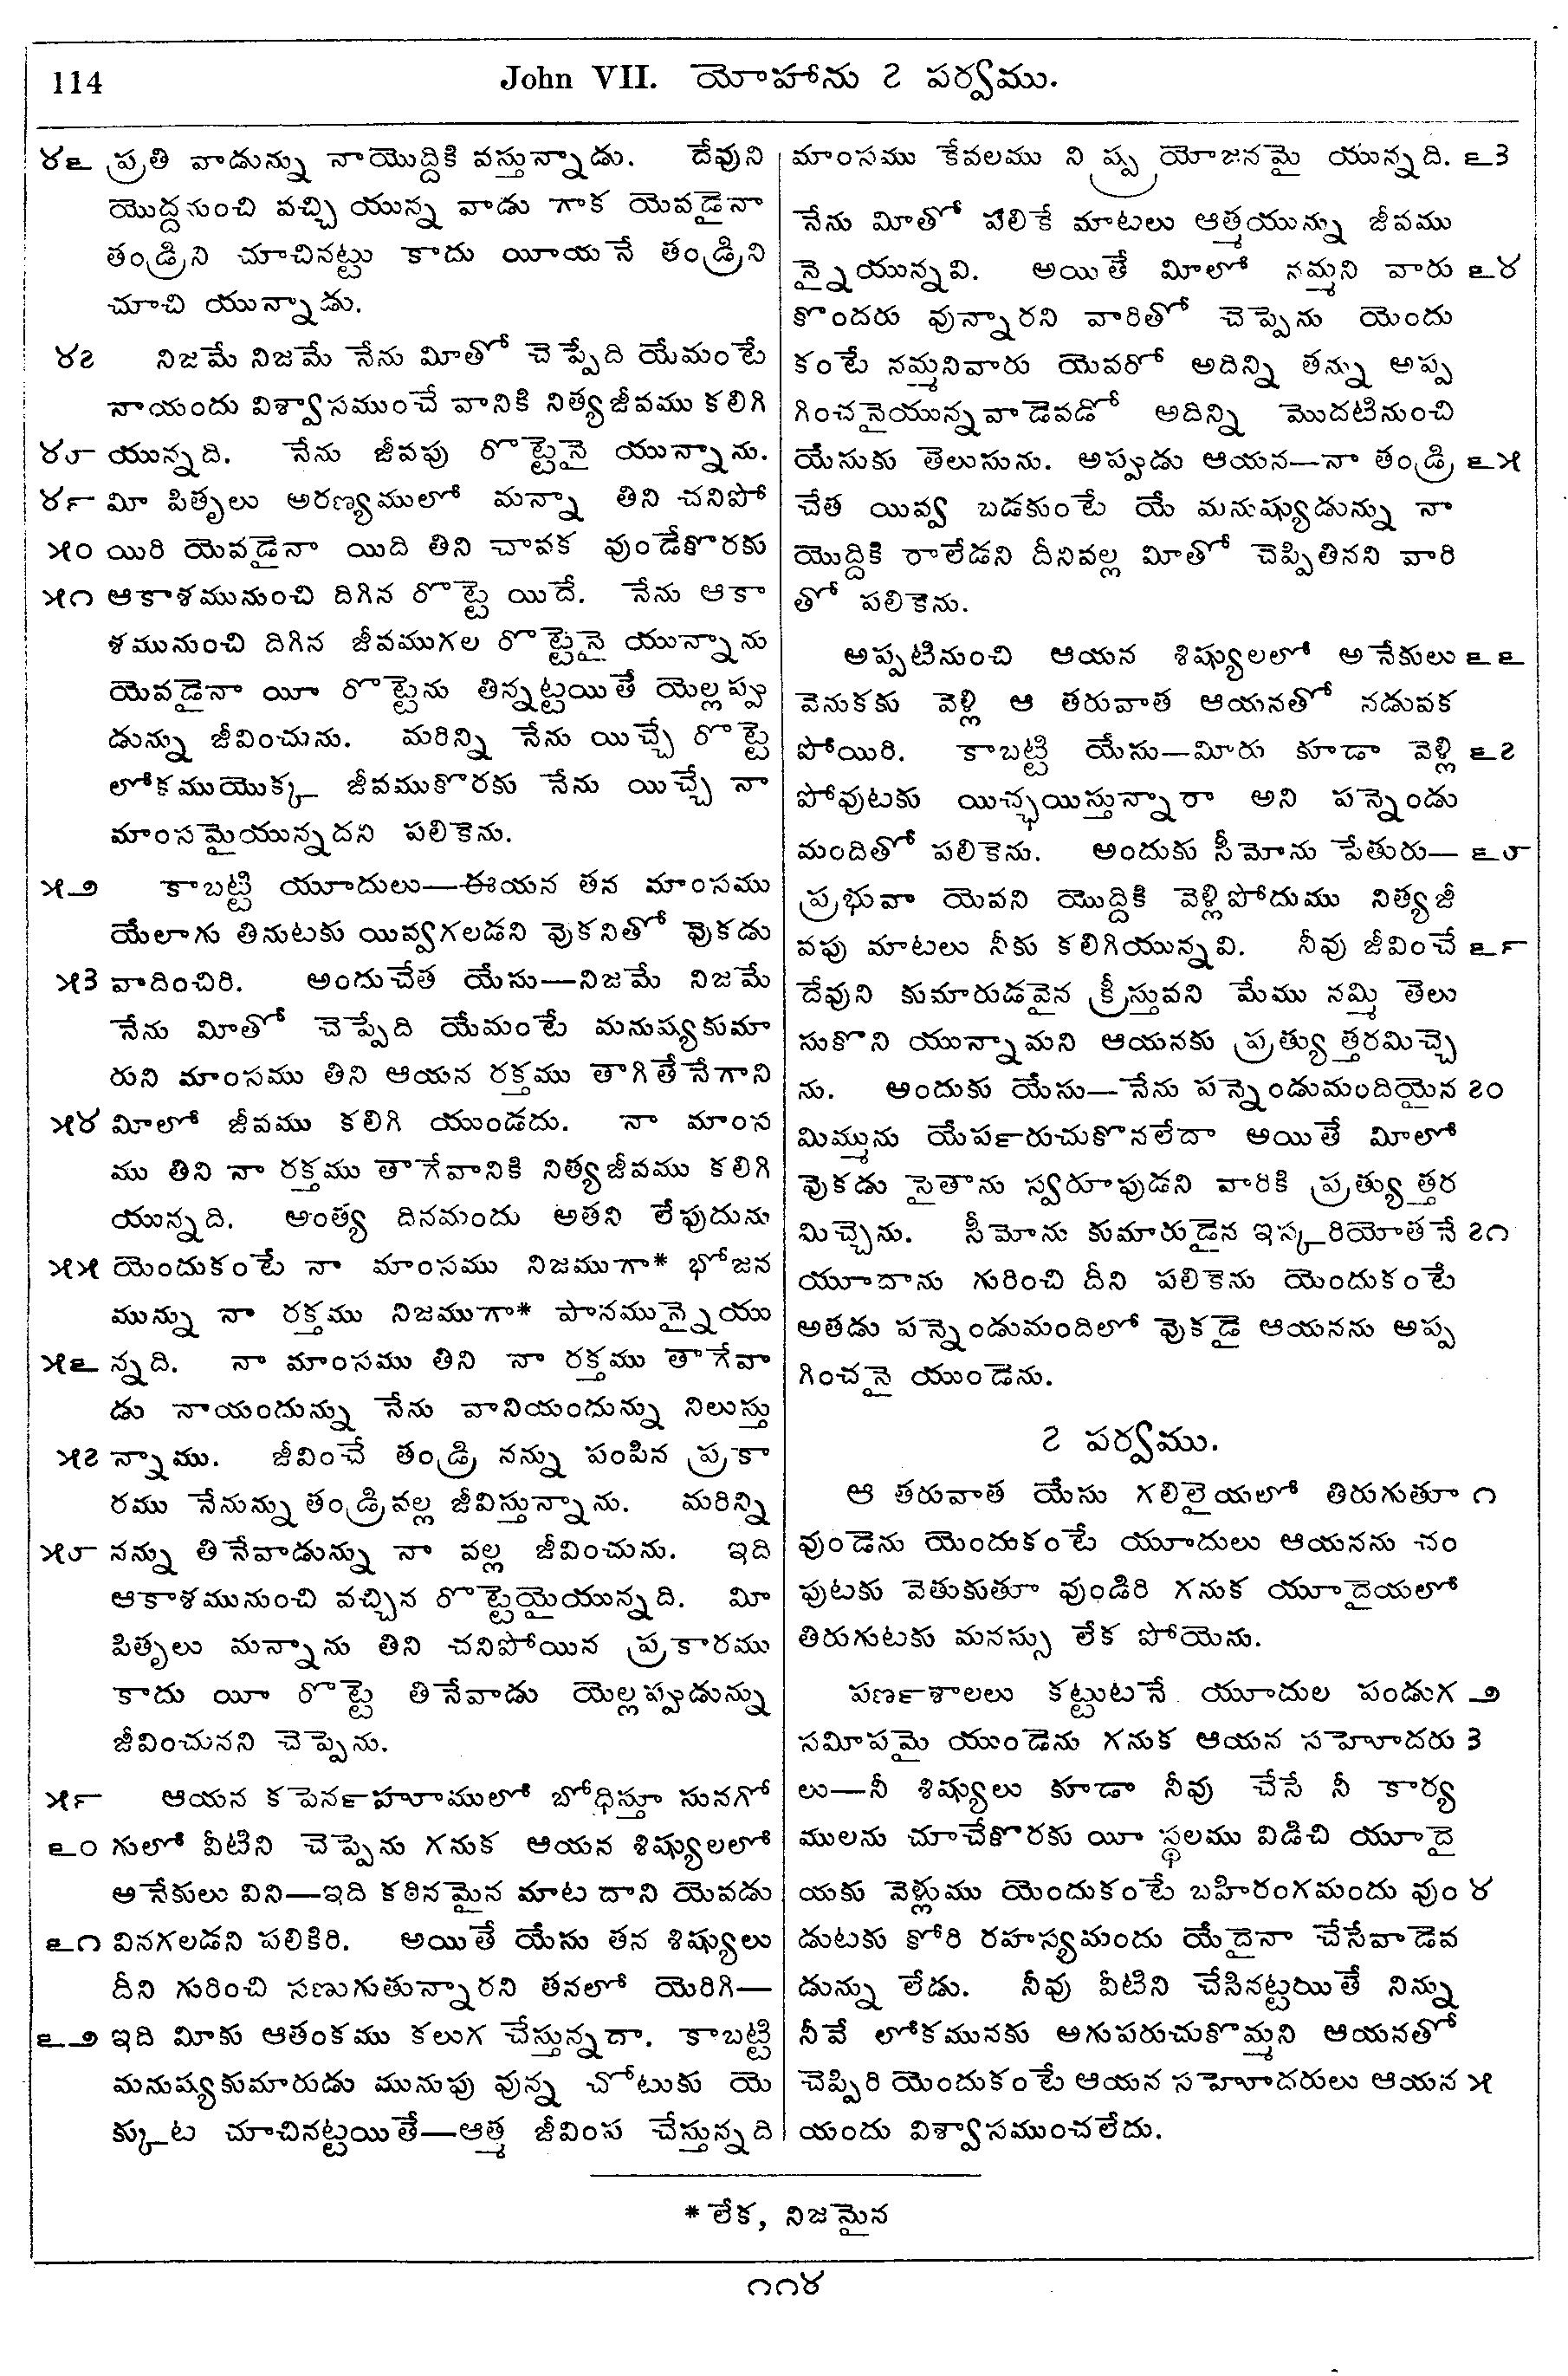 114
John VII. యోహాను ౭ పర్వము.
౪౬ ప్రతి వాడున్ను నాయొద్దికి వస్తున్నాడు. దేవుని
యొద్దనుంచి వచ్చి యున్న వాడు గాక యెవడైనా
తండ్రిని చూచినట్టు కాదు యీయనే తండ్రిని
చూచి యున్నాడు.
౪౭ నిజమే నిజమే నేను మీతో చెప్పేది యేమంటే
నాయందు విశ్వాసముంచే వానికి నిత్యజీవము కలిగి
౪౮ యున్నది. నేను జీవపు రొట్టెనై యున్నాను.
౪౯ మీ పితృలు అరణ్యములో మన్నా తిని చనిపో
౫౦ యిరి యెవడైనా యిది తిని చావక వుండేకొరకు
౫౧ ఆకాశమునుంచి దిగిన రొట్టె యిదే. నేను ఆకా
శమునుంచి దిగిన జీవముగల రొట్టెనై యున్నాను
యెవడైనా యీ రొట్టెను తిన్నట్టయితే యెల్లప్పు
డున్ను జీవించును. మరిన్ని నేను యిచ్చే రొట్టె
లోకముయొక్క జీవముకొరకు నేను యిచ్చే నా
మాంసమైయున్నదని పలికెను.
౫౨ కాబట్టి యూదులు—ఈయన తన మాంసము
యేలాగు తినుటకు యివ్వగలడని వొకనితో వొకడు
౫౩ వాదించిరి. అందుచేత యేసు—నిజమే నిజమే
నేను మీతో చెప్పేది యేమంటే మనుష్యకుమా
రుని మాంసము తిని ఆయన రక్తము తాగితేనేగాని
౫౪ మీలో జీవము కలిగి యుండదు. నా మాంస
ము తిని నా రక్తము తాగేవానికి నిత్యజీవము కలిగి
యున్నది. అంత్య దినమందు అతని లేపుదును
౫౫ యెందుకంటే నా మాంసము నిజముగా* భోజన
మున్ను నా రక్తము నిజముగా* పానమున్నైయు
౫౬ న్నది. నా మాంసము తిని నా రక్తము తాగేవా
డు నాయందున్ను నేను వానియందున్ను నిలుస్తు
౫౭ న్నాము. జీవించే తండ్రి నన్ను పంపిన ప్రకా
రము నేనున్ను తండ్రివల్ల జీవిస్తున్నాను. మరిన్ని
౫౮ నన్ను తినేవాడున్ను నా వల్ల జీవించును. ఇది
ఆకాశమునుంచి వచ్చిన రొట్టెయైయున్నది. మీ
పితృలు మన్నాను తిని చనిపోయిన ప్రకారము
కాదు యీ రొట్టె తినేవాడు యెల్లప్పుడున్ను
జీవించునని చెప్పెను.
౫౯ ఆయన కపెర్నహూములో బోధిస్తూ సునగో
౬౦ గులో వీటిని చెప్పెను గనుక ఆయన శిష్యులలో
అనేకులు విని—ఇది కఠినమైన మాట దాని యెవడు
౬౧ వినగలడని పలికిరి. అయితే యేసు తన శిష్యులు
దీని గురించి సణుగుతున్నారని తనలో యెరిగి—
౬౨ ఇది మీకు ఆతంకము కలుగ చేస్తున్నదా. కాబట్టి
మనుష్యకుమారుడు మునుపు వున్న చోటుకు యె
క్కుట చూచినట్టయితే—ఆత్మ జీవింప చేస్తున్నది
మాంసము కేవలము నిష్ప్రయోజనమై యున్నది. ౬౩
నేను మీతో పలికే మాటలు ఆత్మయున్ను జీవము
న్నైయున్నవి. అయితే మీలో నమ్మని వారు ౬౪
కొందరు వున్నారని వారితో చెప్పెను యెందు
కంటే నమ్మనివారు యెవరో అదిన్ని తన్ను అప్ప
గించనైయున్నవాడెవడో అదిన్ని మొదటినుంచి
యేసుకు తెలుసును. అప్పుడు ఆయన—నా తండ్రి ౬౫
చేత యివ్వ బడకుంటే యే మనుష్యుడున్ను నా
యొద్దికి రాలేడని దీనివల్ల మీతో చెప్పితినని వారి
తో పలికెను.
అప్పటినుంచి ఆయన శిష్యులలో అనేకులు ౬౬
వెనుకకు వెళ్లి ఆ తరువాత ఆయనతో నడువక
పోయిరి. కాబట్టి యేసు—మీరు కూడా వెళ్లి ౬౭
పోవుటకు యిచ్ఛయిస్తున్నారా అని పన్నెండు
మందితో పలికెను. అందుకు సీమోను పేతురు— ౬౮
ప్రభువా యెవని యొద్దికి వెళ్లిపోదుము నిత్యజీ
వపు మాటలు నీకు కలిగియున్నవి. నీవు జీవించే ౬౯
దేవుని కుమారుడవైన క్రీస్తువని మేము నమ్మి తెలు
సుకొని యున్నామని ఆయనకు ప్రత్యుత్తరమిచ్చె
ను. అందుకు యేసు—నేను పన్నెండుమందియైన ౭౦
మిమ్మును యేర్పరుచుకొనలేదా అయితే మీలో
వొకడు సైతాను స్వరూపుడని వారికి ప్రత్యుత్తర
మిచ్చెను. సీమోను కుమారుడైన ఇస్కరియోతనే ౭౧
యూదాను గురించి దీని పలికెను యెందుకంటే
అతడు పన్నెండుమందిలో వొకడై ఆయనను అప్ప
గించనై యుండెను.
౭ పర్వము.
ఆ తరువాత యేసు గలిలైయలో తిరుగుతూ ౧
వుండెను యెందుకంటే యూదులు ఆయనను చం
పుటకు వెతుకుతూ వుండిరి గనుక యూదైయలో
తిరుగుటకు మనస్సు లేక పోయెను.
పర్ణశాలలు కట్టుటనే యూదుల పండుగ ౨
సమీపమై యుండెను గనుక ఆయన సహోదరు ౩
లు—నీ శిష్యులు కూడా నీవు చేసే నీ కార్య
ములను చూచేకొరకు యీ స్థలము విడిచి యూదై
యకు వెళ్లుము యెందుకంటే బహిరంగమందు వుం ౪
డుటకు కోరి రహస్యమందు యేదైనా చేసేవాడెవ
డున్ను లేడు. నీవు వీటిని చేసినట్టయితే నిన్ను
నీవే లోకమునకు అగుపరుచుకొమ్మని ఆయనతో
చెప్పిరి యెందుకంటే ఆయన సహోదరులు ఆయన ౫
యందు విశ్వాసముంచలేదు.
* లేక, నిజమైన
౧౧౪